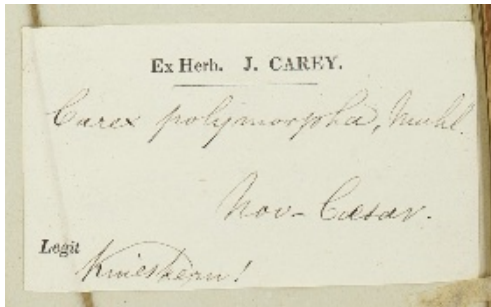 Ex Herb. J. CAREY.
Carex polymorpha, Muhl.
Nov-Cæsar.
Legit
Knieskern!